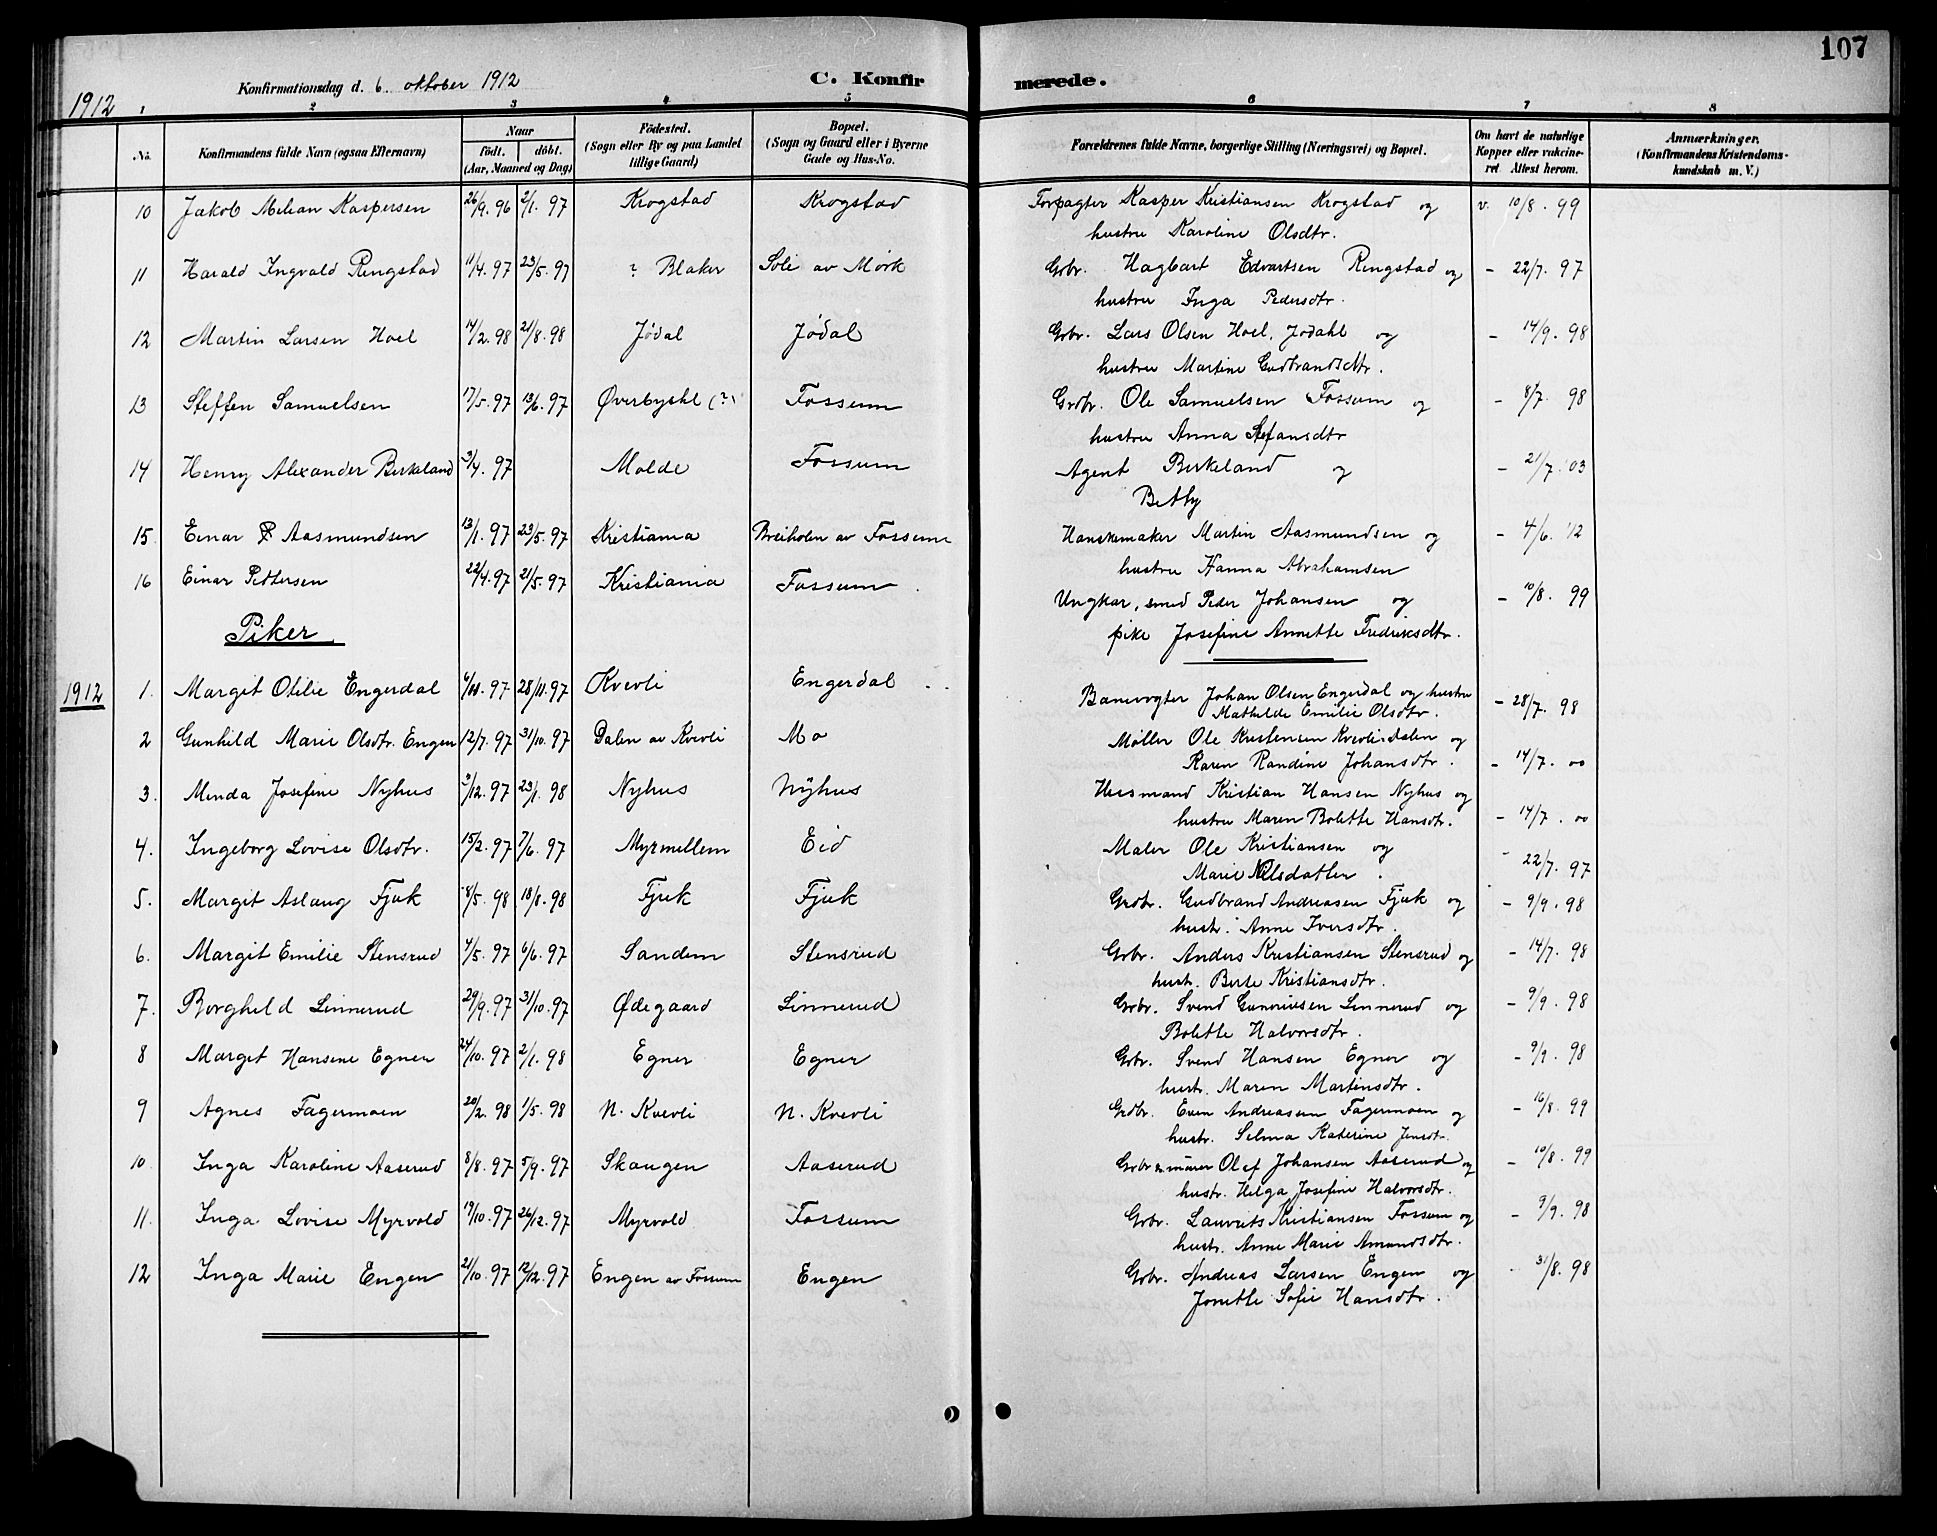 107
Konfirmationsdag d. 6. oktober 1912
C. Konfirmerede.
1912
1 2 3 4 5 6 7 8
No.
Konfirmandens fulde Navn (ogsaa Efternavn)
Naar
födt. döbt.
(Aar, Maaned og Dag)
Födested.
(Sogn eller By og paa Landet
tillige Gaard)
Bopæl.
(Sogn og Gaard eller i Byerne
Gade og Hus-No.
Forældrenes fulde Navne, borgerlige Stilling (Næringsvei) og Bopæl.
Om havt de naturlige
Kopper eller vakcine-
ret Attest herom.
Anmærkninger.
(Konfirmandens Kristendoms-
kundskab m. V.)
10 Jakob Milian Kaspersen 26/9. 96 2/1. 97 Krogstad Krogstad Forpagter Kasper Kristiansen Krogstad og v. 10/8. 99
hustru Karoline Olsdtr.
11 Harald Ingvald Ringstad 11/4. 97 23/5. 97 ? Blaker Soli av Mörk Gbr. Hagbart Edvartsen Ringstad og - 22/7. 97
hustru Inga Pedersdtr.
12 Martin Larsen Hoel 14/2. 98 21/8. 98 Jödal Jödal Gbr. Lars Olsen Hoel, Jödahl og - 14/9. 98
hustru Martine Gudbrandsdtr.
13 Steffen Samuelsen 17/5. 97 13/6. 97 Øverbyskl (?) Fossum Grdbr. Ole Samuelsen Fossum og - 8/7. 98
hustru Anna Stefansdtr
14 Henry Alexander Birkeland 3/4. 97 Molde Fossum Agent Birkeland og - 21/7. 03
Betty
15. Einar Aasmundsen 13/1. 97 23/5. 97 Kristiania Breiholen av Fossum Hanskemaker Martin Aasmundsen og - 4/6. 12
hustru Hanna Abrahamsen
16 Einar Pettersen 22/4. 97 21/5. 97 Kristiania Fossum Ungkar, smed Peder Johansen og - 10/8. 99
pike Josefine Annette Fredriksdtr.
Piker
1912 1. Margit Otilie Engerdal 6/11. 97 28/11. 97 Kvevli Engerdal Banevogter Johan Olsen Engerdal og hustru - 28/7. 98
Mathilde Emilie Olsdtr.
2 Gunhild Marie Olsdtr. Engen 12/7. 97 31/10. 97 Dalen av Kvevli Mo Møller Ole Kristensen Kvevli-dalen og
Karen Randine Johansdtr. - 14/7. 00
3. Minda Josefine Nyhus 3/12. 97 23/1. 98 Nyhus Nyhus Husmand Kristian Hansen Nyhus og
hustru Maren Bolette Hansdtr. - 14/7. 00
4. Ingeborg Lovise Olsdtr. 15/2. 97 7/6. 97 Myrmellem Eid Maler Ole Kristiansen og
Marie Nilsdatter. - 22/7. 97
5. Margit Aslaug Fjuk 8/5. 98 18/8. 98 Fjuk Fjuk Grdbr. Gudbrand Andreasen Fjuk og - 9/9. 98
hustr. Anne Iversdtr.
6. Margit Emilie Stensrud 4/5. 97 6/6. 97 Sandem Stensrud Gbr. Anders Kristiansen Stensrud og - 14/7. 98
hustr. Berte Kristiansdtr.
7. Borghild Linnerud 29/9. 97 31/10. 97 Ødegaard Linnerud Gbr. Svend Gunriusen Linnerud og - 9/9. 98
Bolette Halvorsdtr.
8 Margit Hansine Egner 24/10. 97 2/1. 98 Egner Egner Gbr. Svend Hansen Egner og - 9/9. 98
hustr. Maren Martinsdtr.
9 Agnes Fagermoen 20/2. 98 1/5. 98 N. Kvevli N. Kvevli Grdbr. Even Andreasen Fagermoen og - 16/8. 99
hustr. Selma Katerine Jensdtr.
10. Inga Karoline Aaserud 8/8. 97 5/9. 97 Skaugen Aaserud Gbr & mürer Olaf Johansen Aaserud og - 10/8. 99
hustr. Helga Josefine Halvorsdtr.
11. Inga Lovise Myrvold 19/10. 97 26/12. 97 Myrvold Fossum Gbr. Laurits Kristiansen Fossum og - 9/9. 98
hustr. Anne Marie Amundsdtr.
12 Inga Marie Engen 21/10. 97 12/12. 97 Engen av Fossum Engen Gbr. Andreas Larsen Engen og - 31/8. 98
Jonette Sofie Hansdtr.